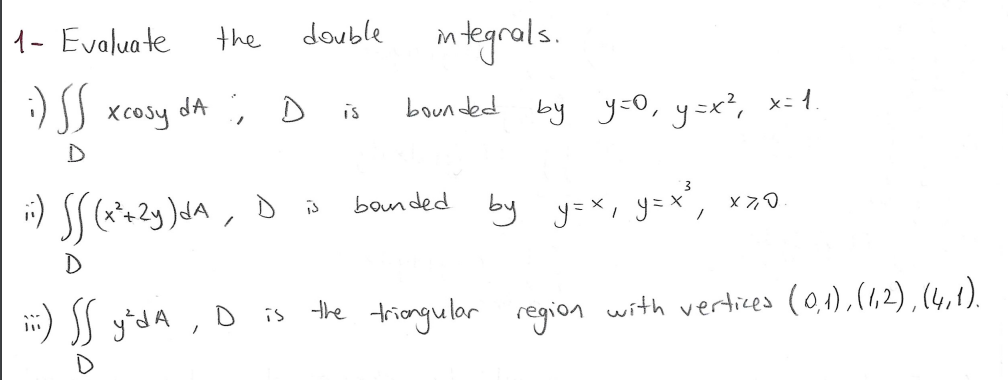 1- Evaluate the double integrals.
i) ∬ x cosy dA ; D is bounded by y=0, y=x², x=1.
D
ii) ∬(x²+2y)dA , D is bounded by y=x, y=x³, x⩾0.
D
iii) ∬ y²dA , D is the triangular region with vertices (0,1),(1,2),(4,1).
D